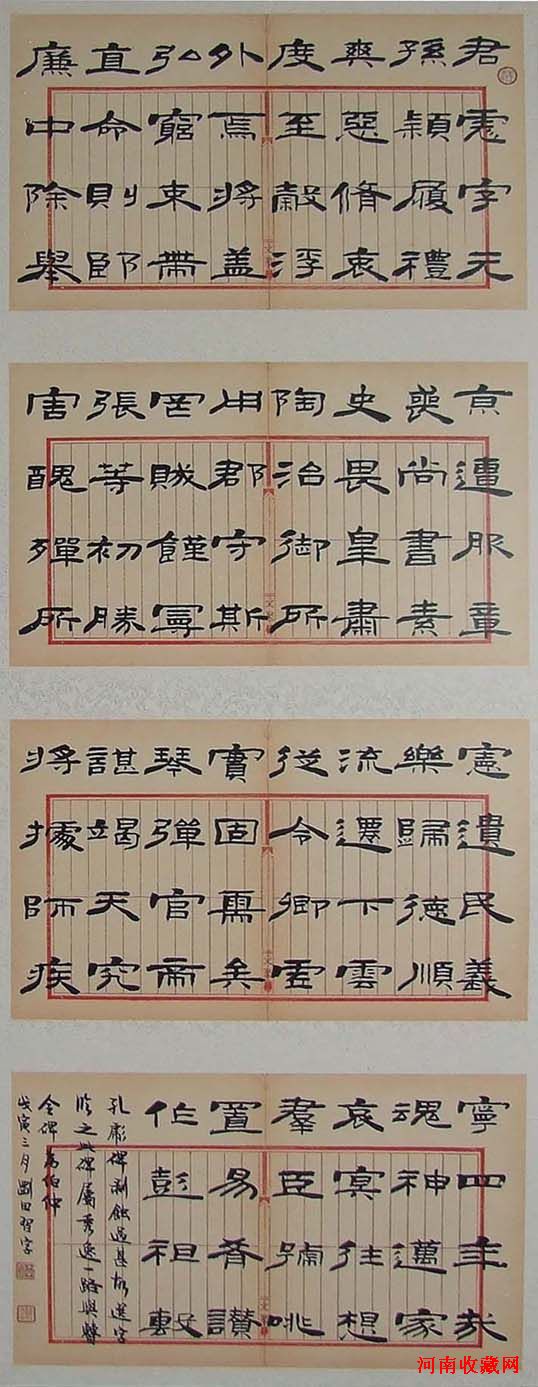 君字元
孫穎履禮
爽惡脩衷
度至穀浮
外焉將盖
弘窮束帶
直命則郎
廉中除舉
遭服章
喪尚書素
史畏皇肅
陶治御所
用郡守斯
罔賊饉寧
張等初勝
害醜殫所
憲遺民義
樂歸德順
流還下雲
從令卿虛
實固矣
琴彈官而
諶竭天究
將據師疾
寧四年
魂神邁家
哀冥往想
羣臣號咷
置易肴讚
作彭祖
孔彪碑剥蝕過甚故選字
臨之此碑屬秀逸一路與曹
全碑為伯仲
戊寅三月劉田習字
河南收藏网